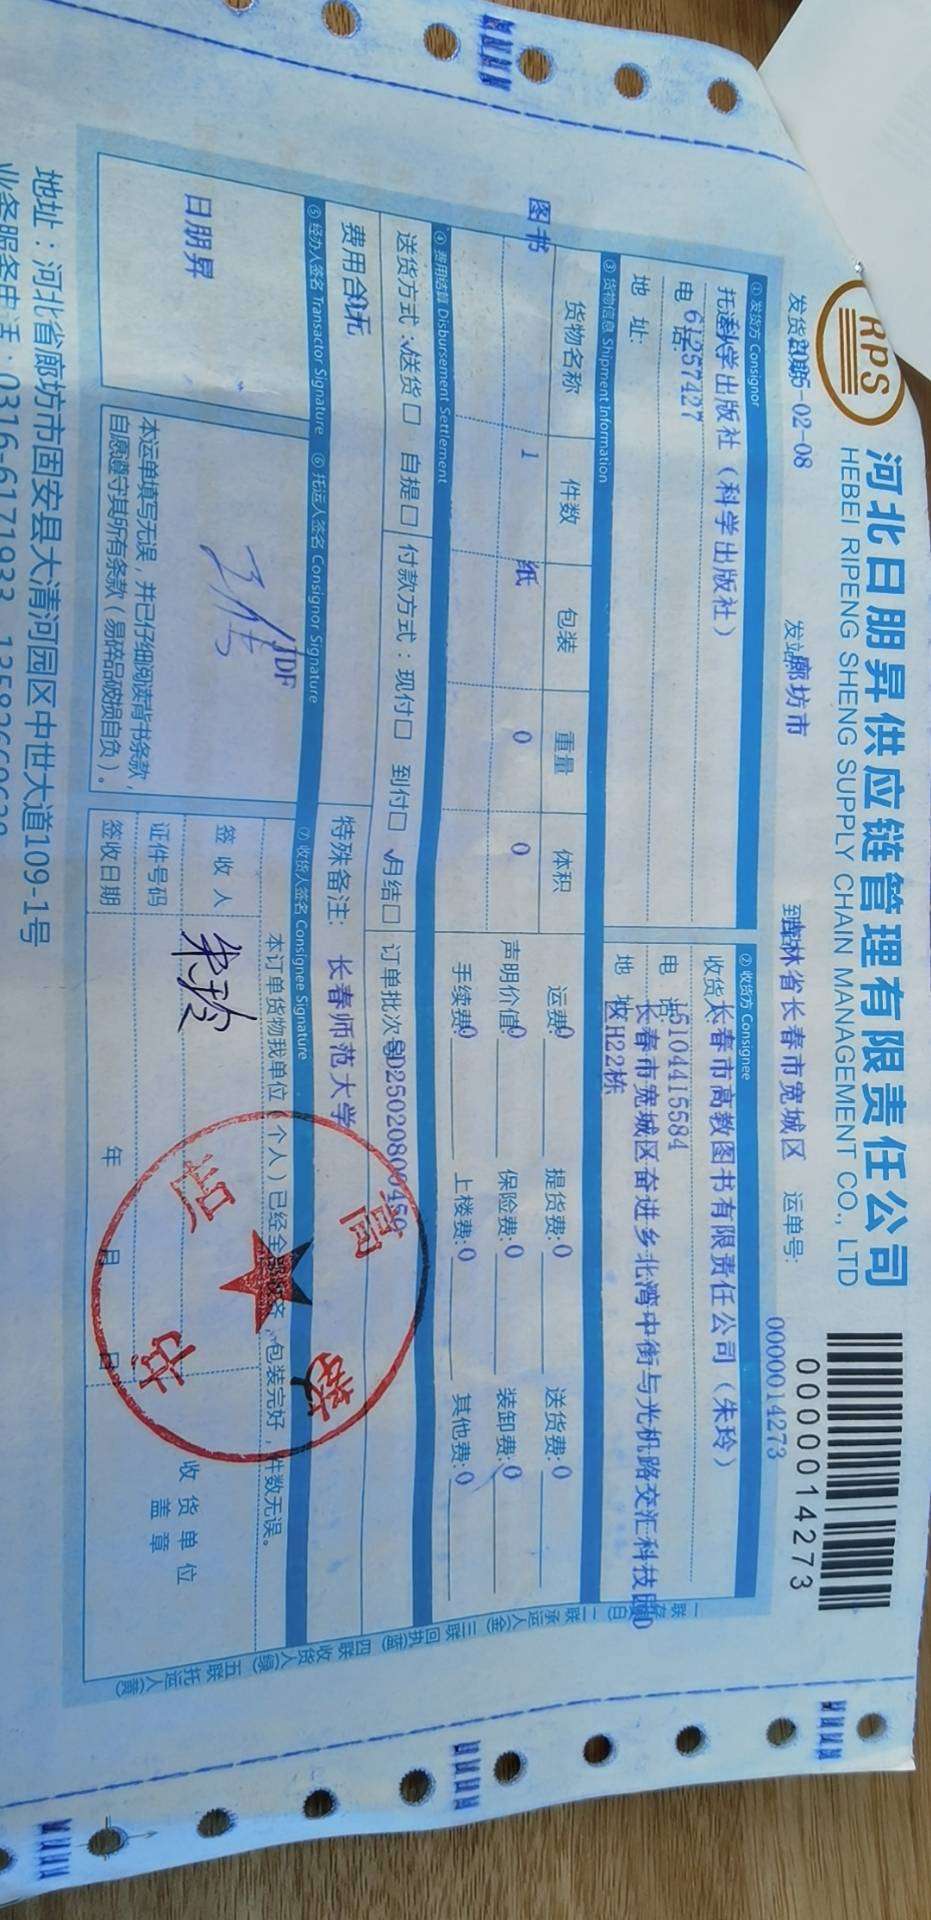 RPS
河北日朋昇供应链管理有限责任公司
HEBEI RIPENG SHENG SUPPLY CHAIN MANAGEMENT CO., LTD
0000014273
发货日期 2025-02-08 发站: 廊坊市 到站: 吉林省长春市宽城区 运单号: 0000014273
① 发货方 Consignor
托运人: 科学出版社（科学出版社）
电 话: 61257427
地 址:
② 收货方 Consignee
收货人: 长春市高教图书有限责任公司（朱玲）
电 话:
地 址: 长春市宽城区奋进乡北湾中街与光机路交汇科技园D
区H22栋
③ 货物信息 Shipment Information
货物名称 件数 包装 重量 体积
图书 1 纸 0 0
运费: 0 提货费: 0 送货费: 0
声明价值: 0 保险费: 0 装卸费: 0
手续费: 0 上楼费: 0 其他费: 0
④ 费用结算 Disbursement Settlement
送货方式: √送货□ 自提□ 付款方式: 现付□ 到付□ √月结□ 订单批次号: SD25020800459
费用合计: 0元 特殊备注: 长春师范大学
⑤ 经办人签名 Transactor Signature ⑥ 托运人签名 Consignor Signature ⑦ 收货人签名 Consignee Signature
日朋昇
JDF
本运单填写无误，并已仔细阅读背书条款，
自愿遵守其所有条款（易碎品破损自负）。
本订单货物我单位（个人）已经全部验齐，包装完好，件数无误。
签 收 人 朱玲
证件号码
签收日期 年 月 日
收 货 单 位
盖 章
一联 存根(白) 二联 承运人(金) 三联 回执(蓝) 四联 收货人(绿) 五联 托运人(黄)
地址：河北省廊坊市固安县大清河园区中世大道109-1号
业务服务电话：0316-6171933